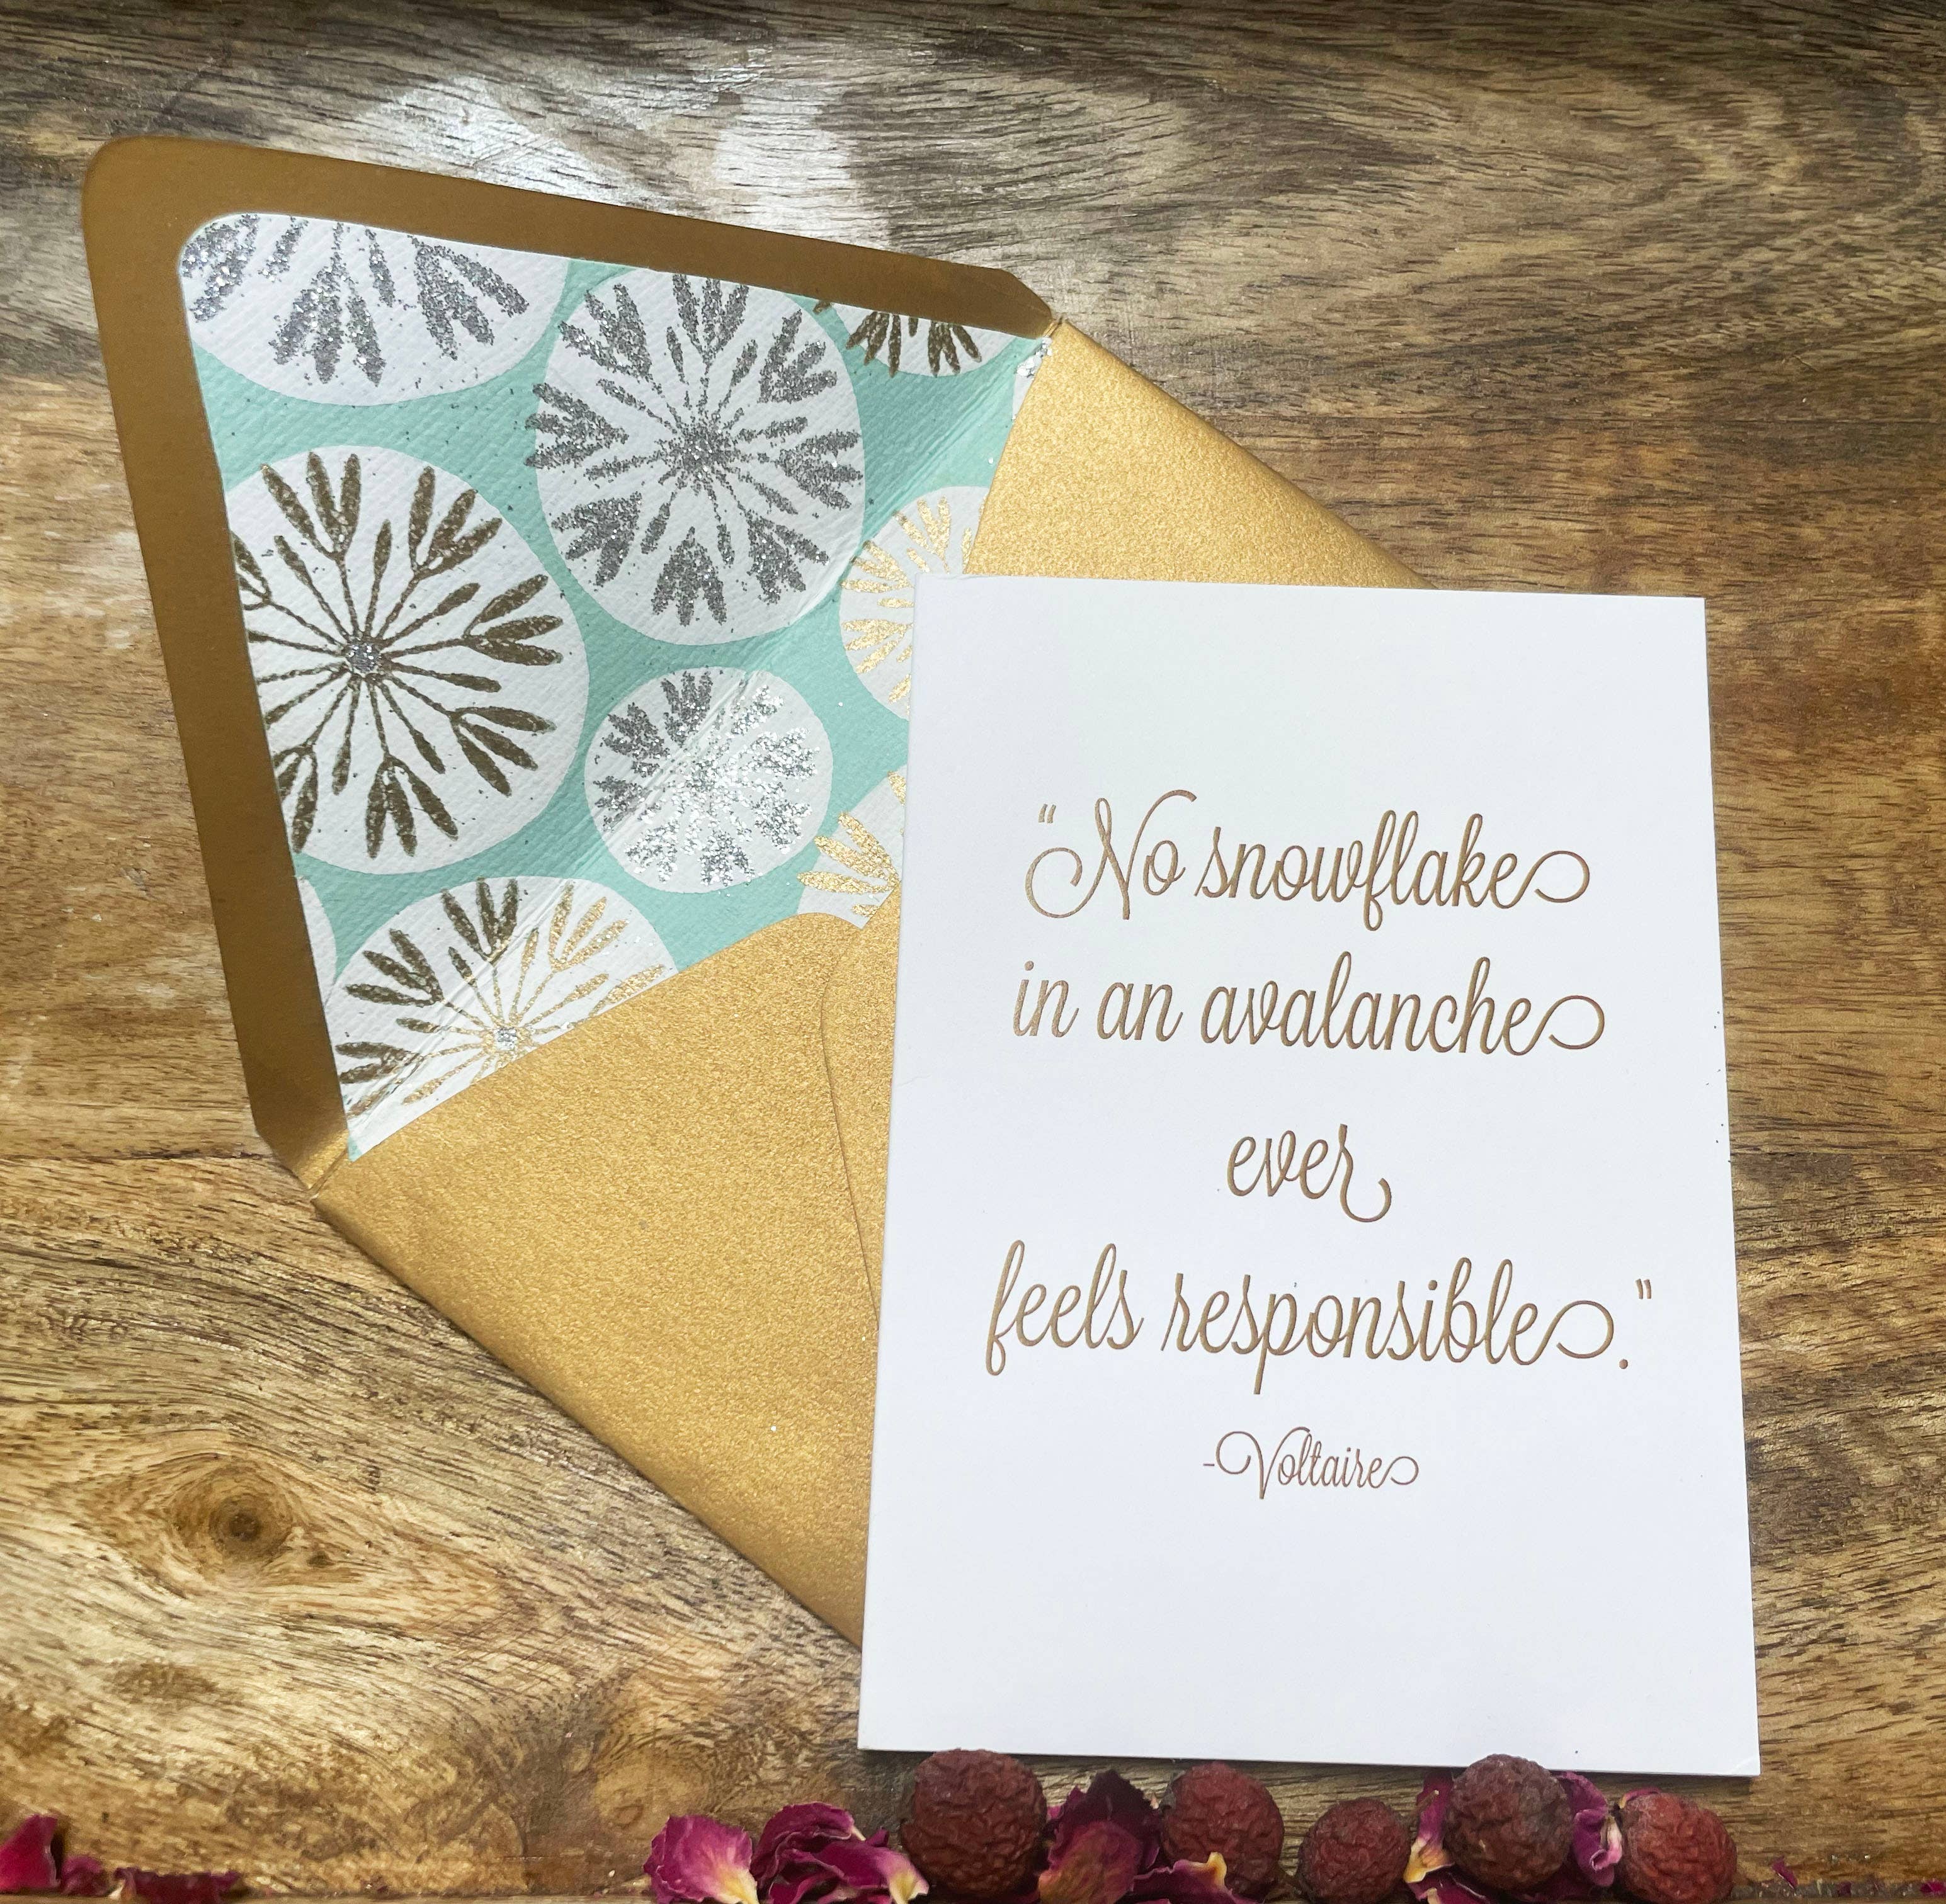 “No snowflake
in an avalanche
ever
feels responsible."
-Voltaire